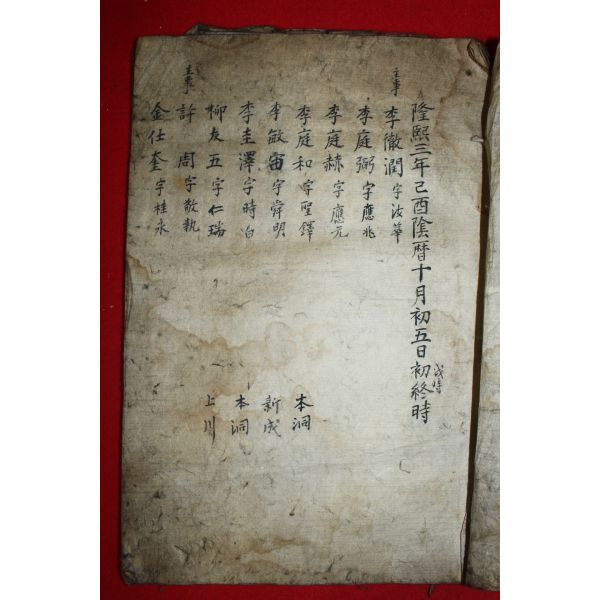 隆熙三年己酉陰曆十月初五日初終時
戌時
主事 李徹潤 字汝華
李庭弼 字應兆
李庭赫 字應元
李庭和 字聖鐸 本洞
李敏宙 字舜明 新成
李圭澤 字時白 本洞
柳友五 字仁瑞 上川
主事 許周 字敬執
金仕奎 字桂永